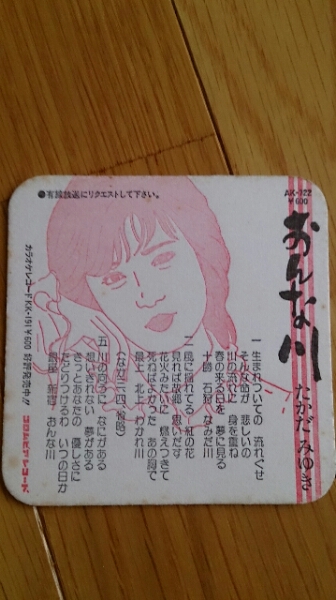 AK-322
¥600
おんな川
たかだ みゆき
●有線放送にリクエストして下さい。
一 生まれついての 流れぐせ
そんな命が 悲しいの
川の流れに 身を重ね
春の来る日を 夢に見る
十勝 石狩 なみだ川
二 風に揺れてる 紅の花
見れば故郷 思いだす
花火みたいに 燃えつきて
死ねばよかった あの胸で
最上 北上 わかれ川
(なか三、四、省略)
五 川の向うに なにがある
想いきれない 夢がある
きっとあなたの 優しさに
たどりつけるわ いつの日か
おんな川
カラオケレコードKK-151 ¥600 好評発売中!!
コロムビアレコード